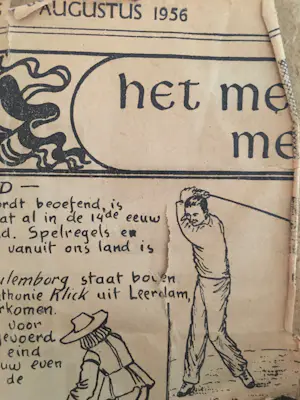 AUGUSTUS 1956
het me
me
D —
rdt beoefend, is
at al in de 14de eeuw
d. Spelregels en
vanuit ons land is
ulemborg staat boven
thunie Klick uit Leerdam,
rkomen.
voor
gevoerd
eind
uw even
de